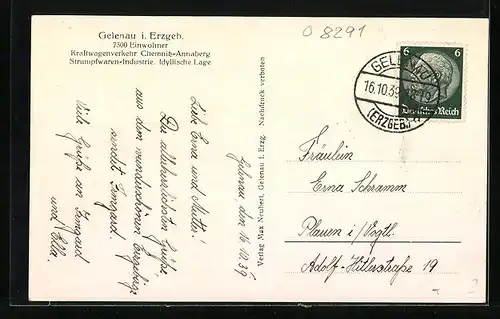 Gelenau i. Erzgeb.
7300 Einwohner
Kraftwagenverkehr Chemnitz-Annaberg
Strumpfwaren-Industrie. Idyllische Lage
O 8291
GELENAU
16.10.39
(ERZGEB.)
6 6
Deutsches Reich
Gelenau, den 16.10.39
Liebe Erna und Mutter!
Die allerherzlichsten Grüße
aus dem wunderschönen Erzgebirge
sendet Irmgard.
Viele Grüße an Irmgard
und Ella
Verlag Max Neubert, Gelenau i. Erzg. Nachdruck verboten
Fräulein
Erna Schramm
Plauen i/Vogtl.
Adolf-Hitlerstraße 19